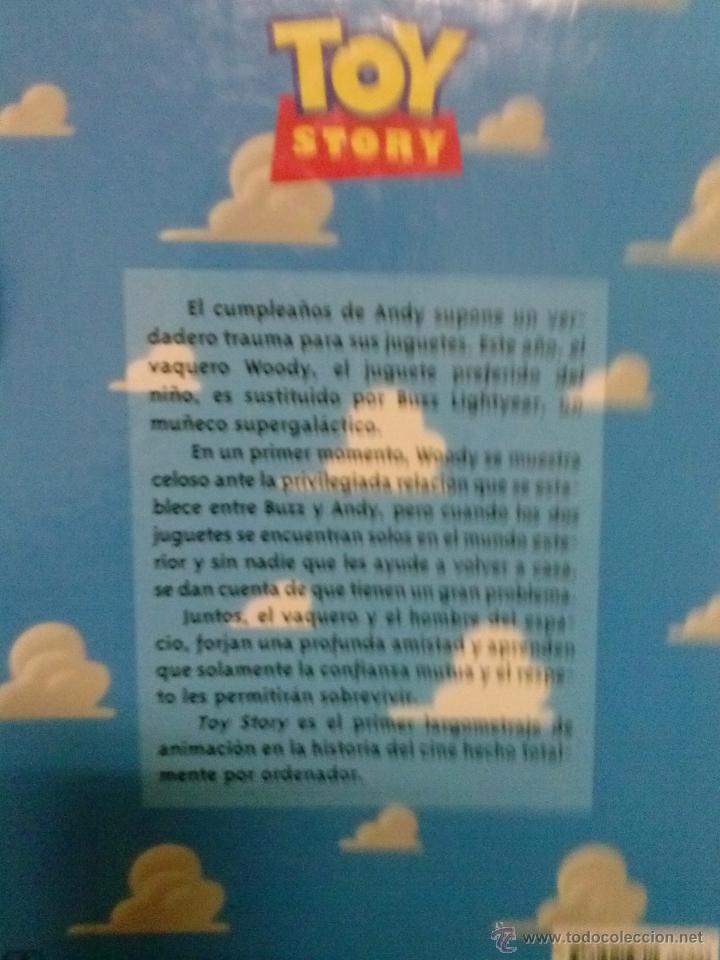 TOY
STORY
El cumpleaños de Andy supone un ver-
dadero trauma para sus juguetes. Este año, el
vaquero Woody, el juguete preferido del
niño, es sustituido por Buzz Lightyear, un
muñeco supergaláctico.
En un primer momento, Woody se muestra
celoso ante la privilegiada relación que se esta-
blece entre Buzz y Andy, pero cuando los dos
juguetes se encuentran solos en el mundo exte-
rior y sin nadie que les ayude a volver a casa,
se dan cuenta de que tienen un gran problema.
Juntos, el vaquero y el hombre del espa-
cio, forjan una profunda amistad y aprenden
que solamente la confianza mutua y el respe-
to les permitirán sobrevivir.
Toy Story es el primer largometraje de
animación en la historia del cine hecho total-
mente por ordenador.
© www.todocoleccion.net